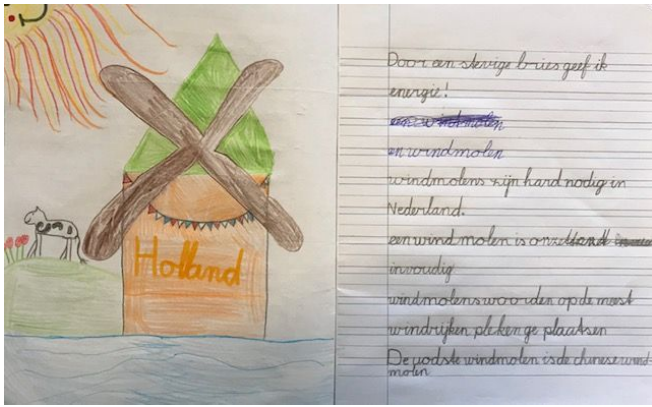 Holland
Door een stevige bries geef ik
energie!
en windmolen
windmolens zijn hard nodig in
Nederland.
een windmolen is onz
invoudig
windmolens woorden op de meest
windrijken pleken ge plaatsen
De uodste windmolen is de chinese wind-
molen